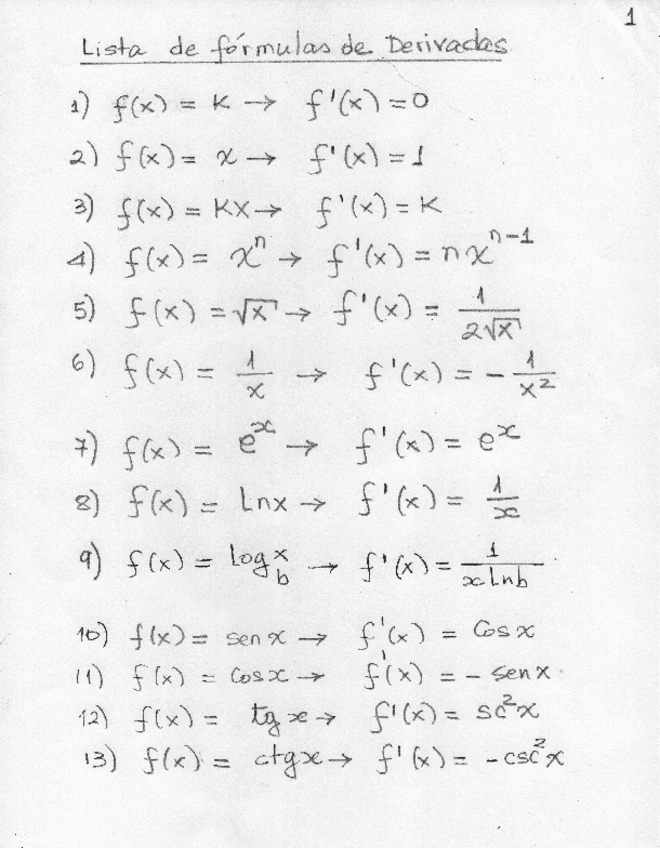 1
Lista de fórmulas de Derivadas
1) f(x) = K → f'(x) = 0
2) f(x) = x → f'(x) = 1
3) f(x) = Kx → f'(x) = K
4) f(x) = xⁿ → f'(x) = nxⁿ⁻¹
5) f(x) = √x → f'(x) = 1/(2√x)
6) f(x) = 1/x → f'(x) = -1/x²
7) f(x) = eˣ → f'(x) = eˣ
8) f(x) = Lnx → f'(x) = 1/x
9) f(x) = log_b x → f'(x) = 1/(x Lnb)
10) f(x) = sen x → f'(x) = Cos x
11) f(x) = Cosx → f'(x) = - sen x
12) f(x) = tg x → f'(x) = sc²x
13) f(x) = ctgx → f'(x) = -csc²x